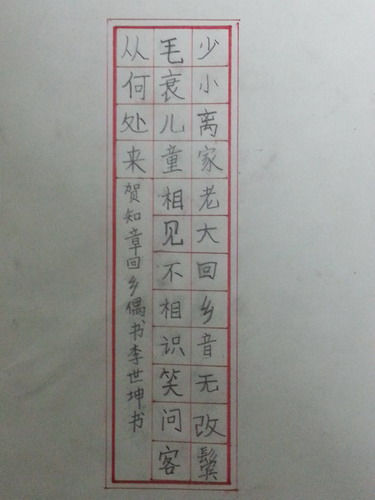 少小离家老大回乡音无改鬓
毛衰儿童相见不相识笑问客
从何处来贺知章回乡偶书李世坤书